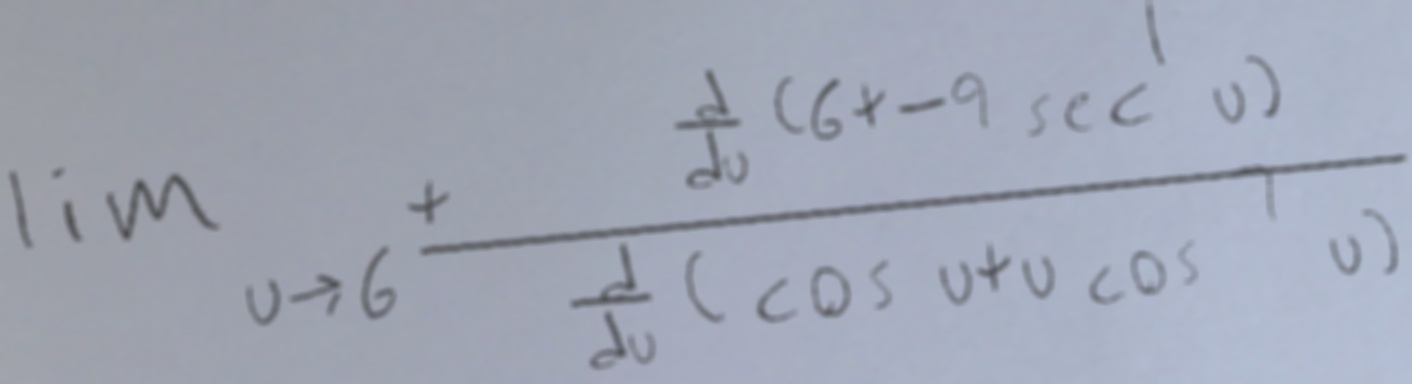 lim u→6⁺ \frac{\frac{d}{du}(6+-9 sec^1 u)}{\frac{d}{du}(cos u+u cos^1 u)}